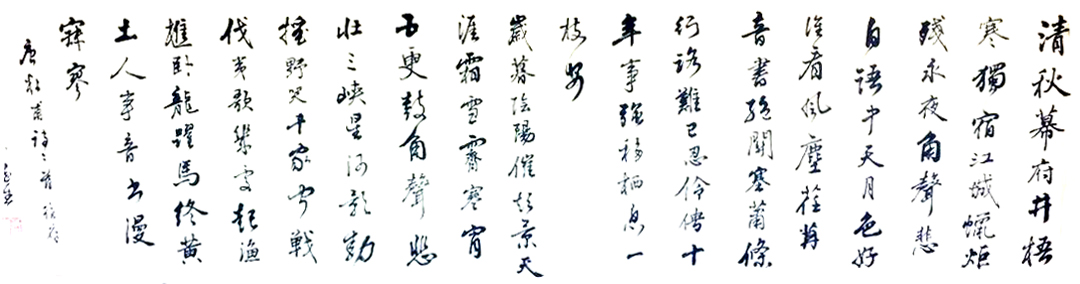 清秋幕府井梧
寒獨宿江城蠟炬
殘永夜角聲悲
自語中天月色好
誰看風塵荏苒
音書絕關塞蕭條
行路難已忍伶俜十
年事強移栖息一
枝安
歲暮陰陽催短景天
涯霜雪霽寒宵
五更鼓角聲悲
壯三峽星河影動
搖野哭千家聞戰
伐夷歌幾處起漁
樵臥龍躍馬終黃
土人事音書漫
寂寥
唐杜甫詩二首